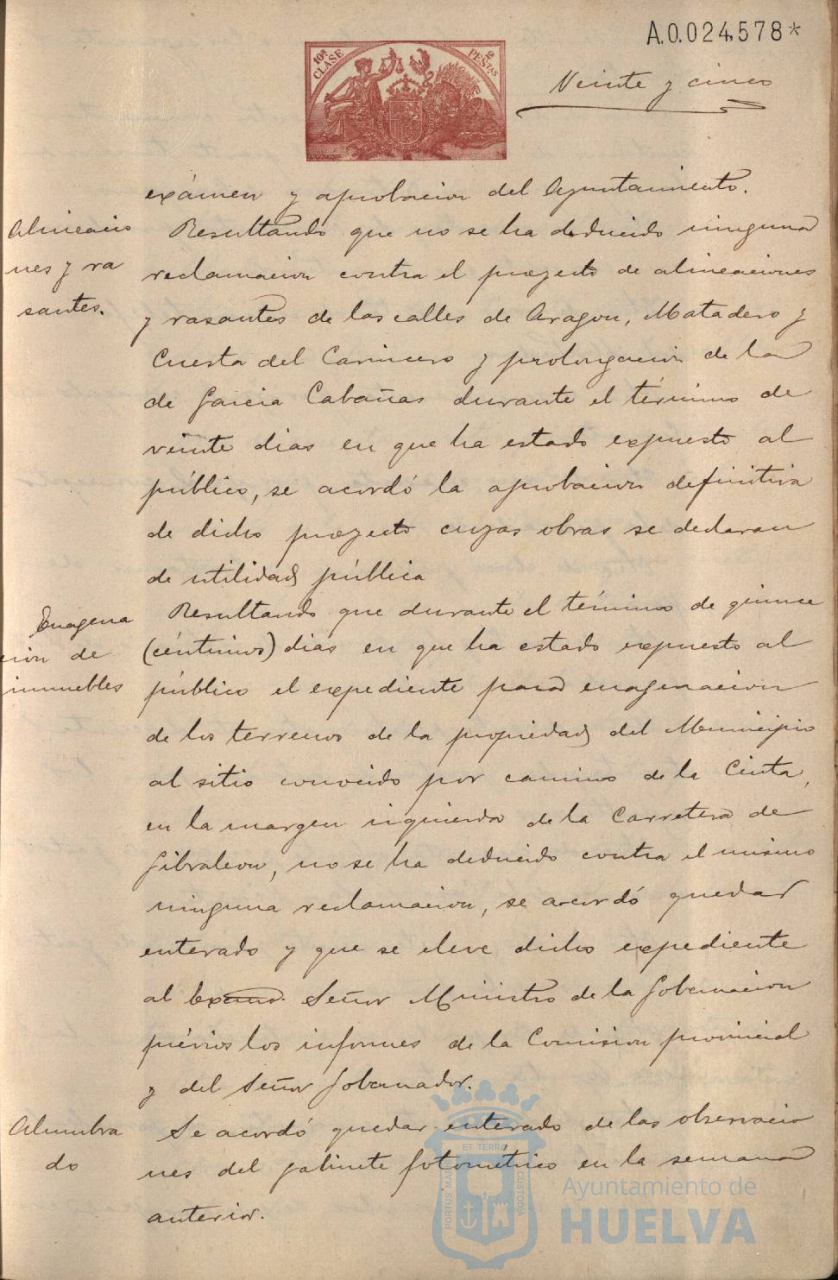 A.0.024,578*
10ª CLASE 2 PESETAS
Veinte y cinco
exámen y aprobacion del Ayuntamiento.
Alineacio
nes y ra
santes.
Resultando que no se ha deducido ninguna
reclamacion contra el proyecto de alineaciones
y rasantes de las calles de Aragon, Matadero y
Cuesta del Carnicero y prolongacion de la
de Garcia Cabañas durante el término de
veinte dias en que ha estado expuesto al
público, se acordó la aprobacion definitiva
de dicho proyecto cuyas obras se declaran
de utilidad pública
Enagena
cion de
inmuebles
Resultando que durante el término de quince
(céntimos) dias en que ha estado expuesto al
público el expediente para enagenacion
de los terrenos de la propiedad del Municipio
al sitio conocido por camino de la Cinta,
en la margen izquierda de la Carretera de
Gibraleon, no se ha deducido contra el mismo
ninguna reclamacion, se acordó quedar
enterado y que se eleve dicho expediente
al Excmo. Señor Ministro de la Gobernacion
prévios los informes de la Comision provincial
y del Señor Gobernador.
Alumbra
do
Se acordó quedar enterado de las observacio
nes del gabinete fotométrico en la semana
anterior.
Ayuntamiento de
HUELVA